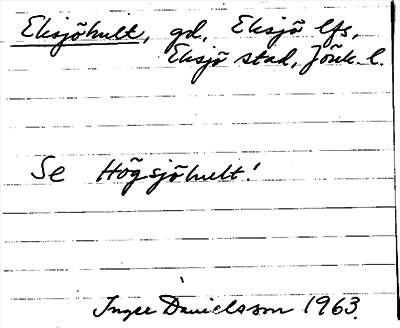 Eksjöhult, gd, Eksjö lfs,
Eksjö stad, Jönk. l.
Se Högsjöhult!
Inger Danielsson 1963.